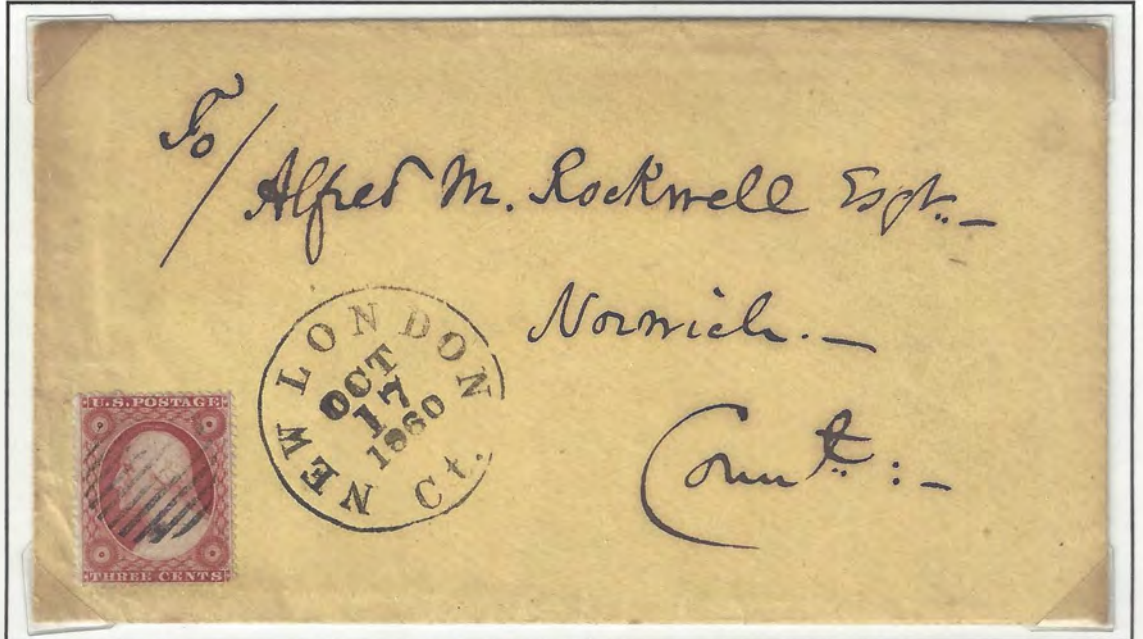 To/
Alfred M. Rockwell Esqr. -
Norwich. -
Connt. : -
NEW LONDON Ct.
OCT
17
1860
U.S. POSTAGE
THREE CENTS